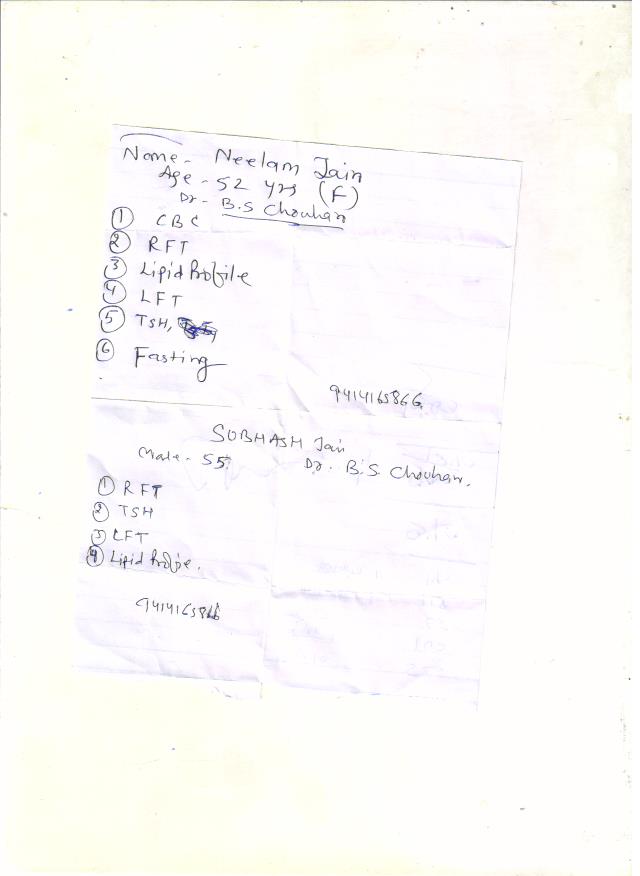 Name - Neelam Jain
Age - 52 yrs (F)
Dr - B.S Chouhan
① CBC
② RFT
③ Lipid Profile
④ LFT
⑤ TSH,
⑥ Fasting
9414165866
SUBHASH Jain
Male - 55
Dr. B.S. Chouhan.
① RFT
② TSH
③ LFT
④ Lipid Profile.
9414165866